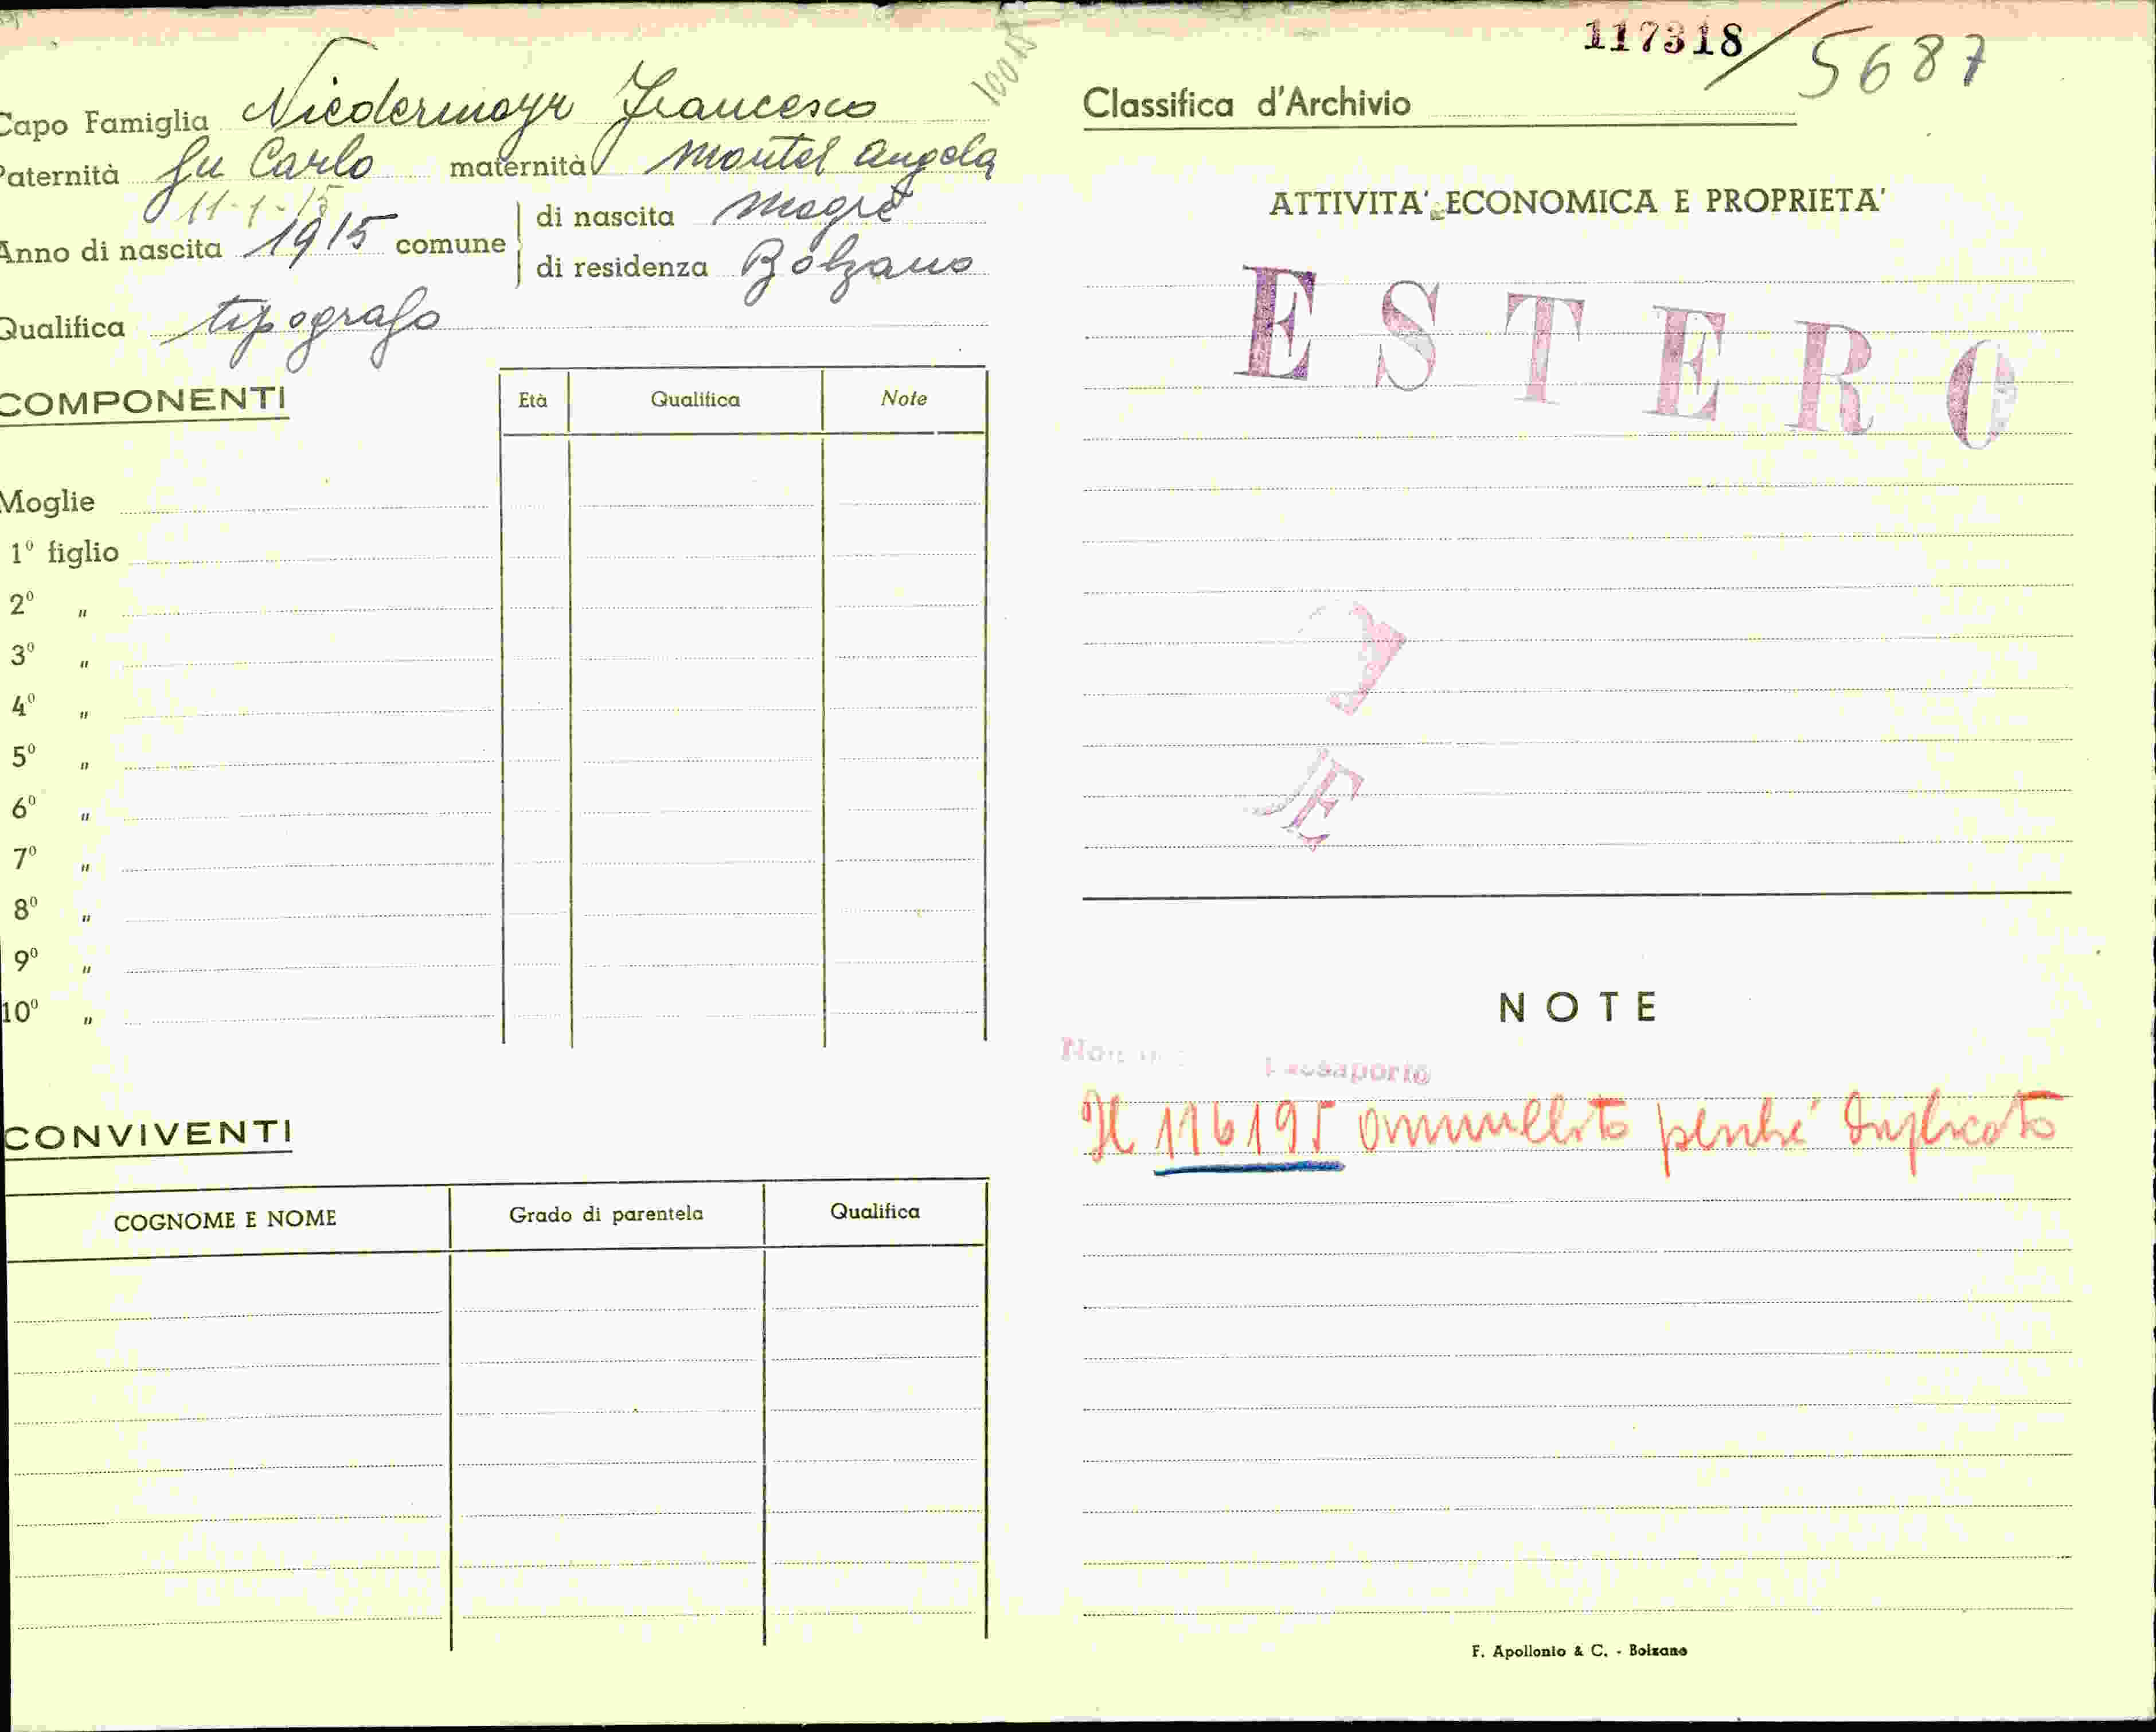 117318 / 5687
Capo Famiglia Niedermayr Francesco
Paternità fu Carlo maternità Montel Angela
11-1-15
Anno di nascita 1915 comune
di nascita Magrè
di residenza Bolzano
Qualifica tipografo
COMPONENTI
Età Qualifica Note
Moglie
1º figlio
2º "
3º "
4º "
5º "
6º "
7º "
8º "
9º "
10º "
CONVIVENTI
COGNOME E NOME Grado di parentela Qualifica
Classifica d'Archivio
ATTIVITA' ECONOMICA E PROPRIETA'
ESTERO
E
NOTE
Non Passaporto
Il 116195 annullato perché duplicato
F. Apollonio & C. - Bolzano